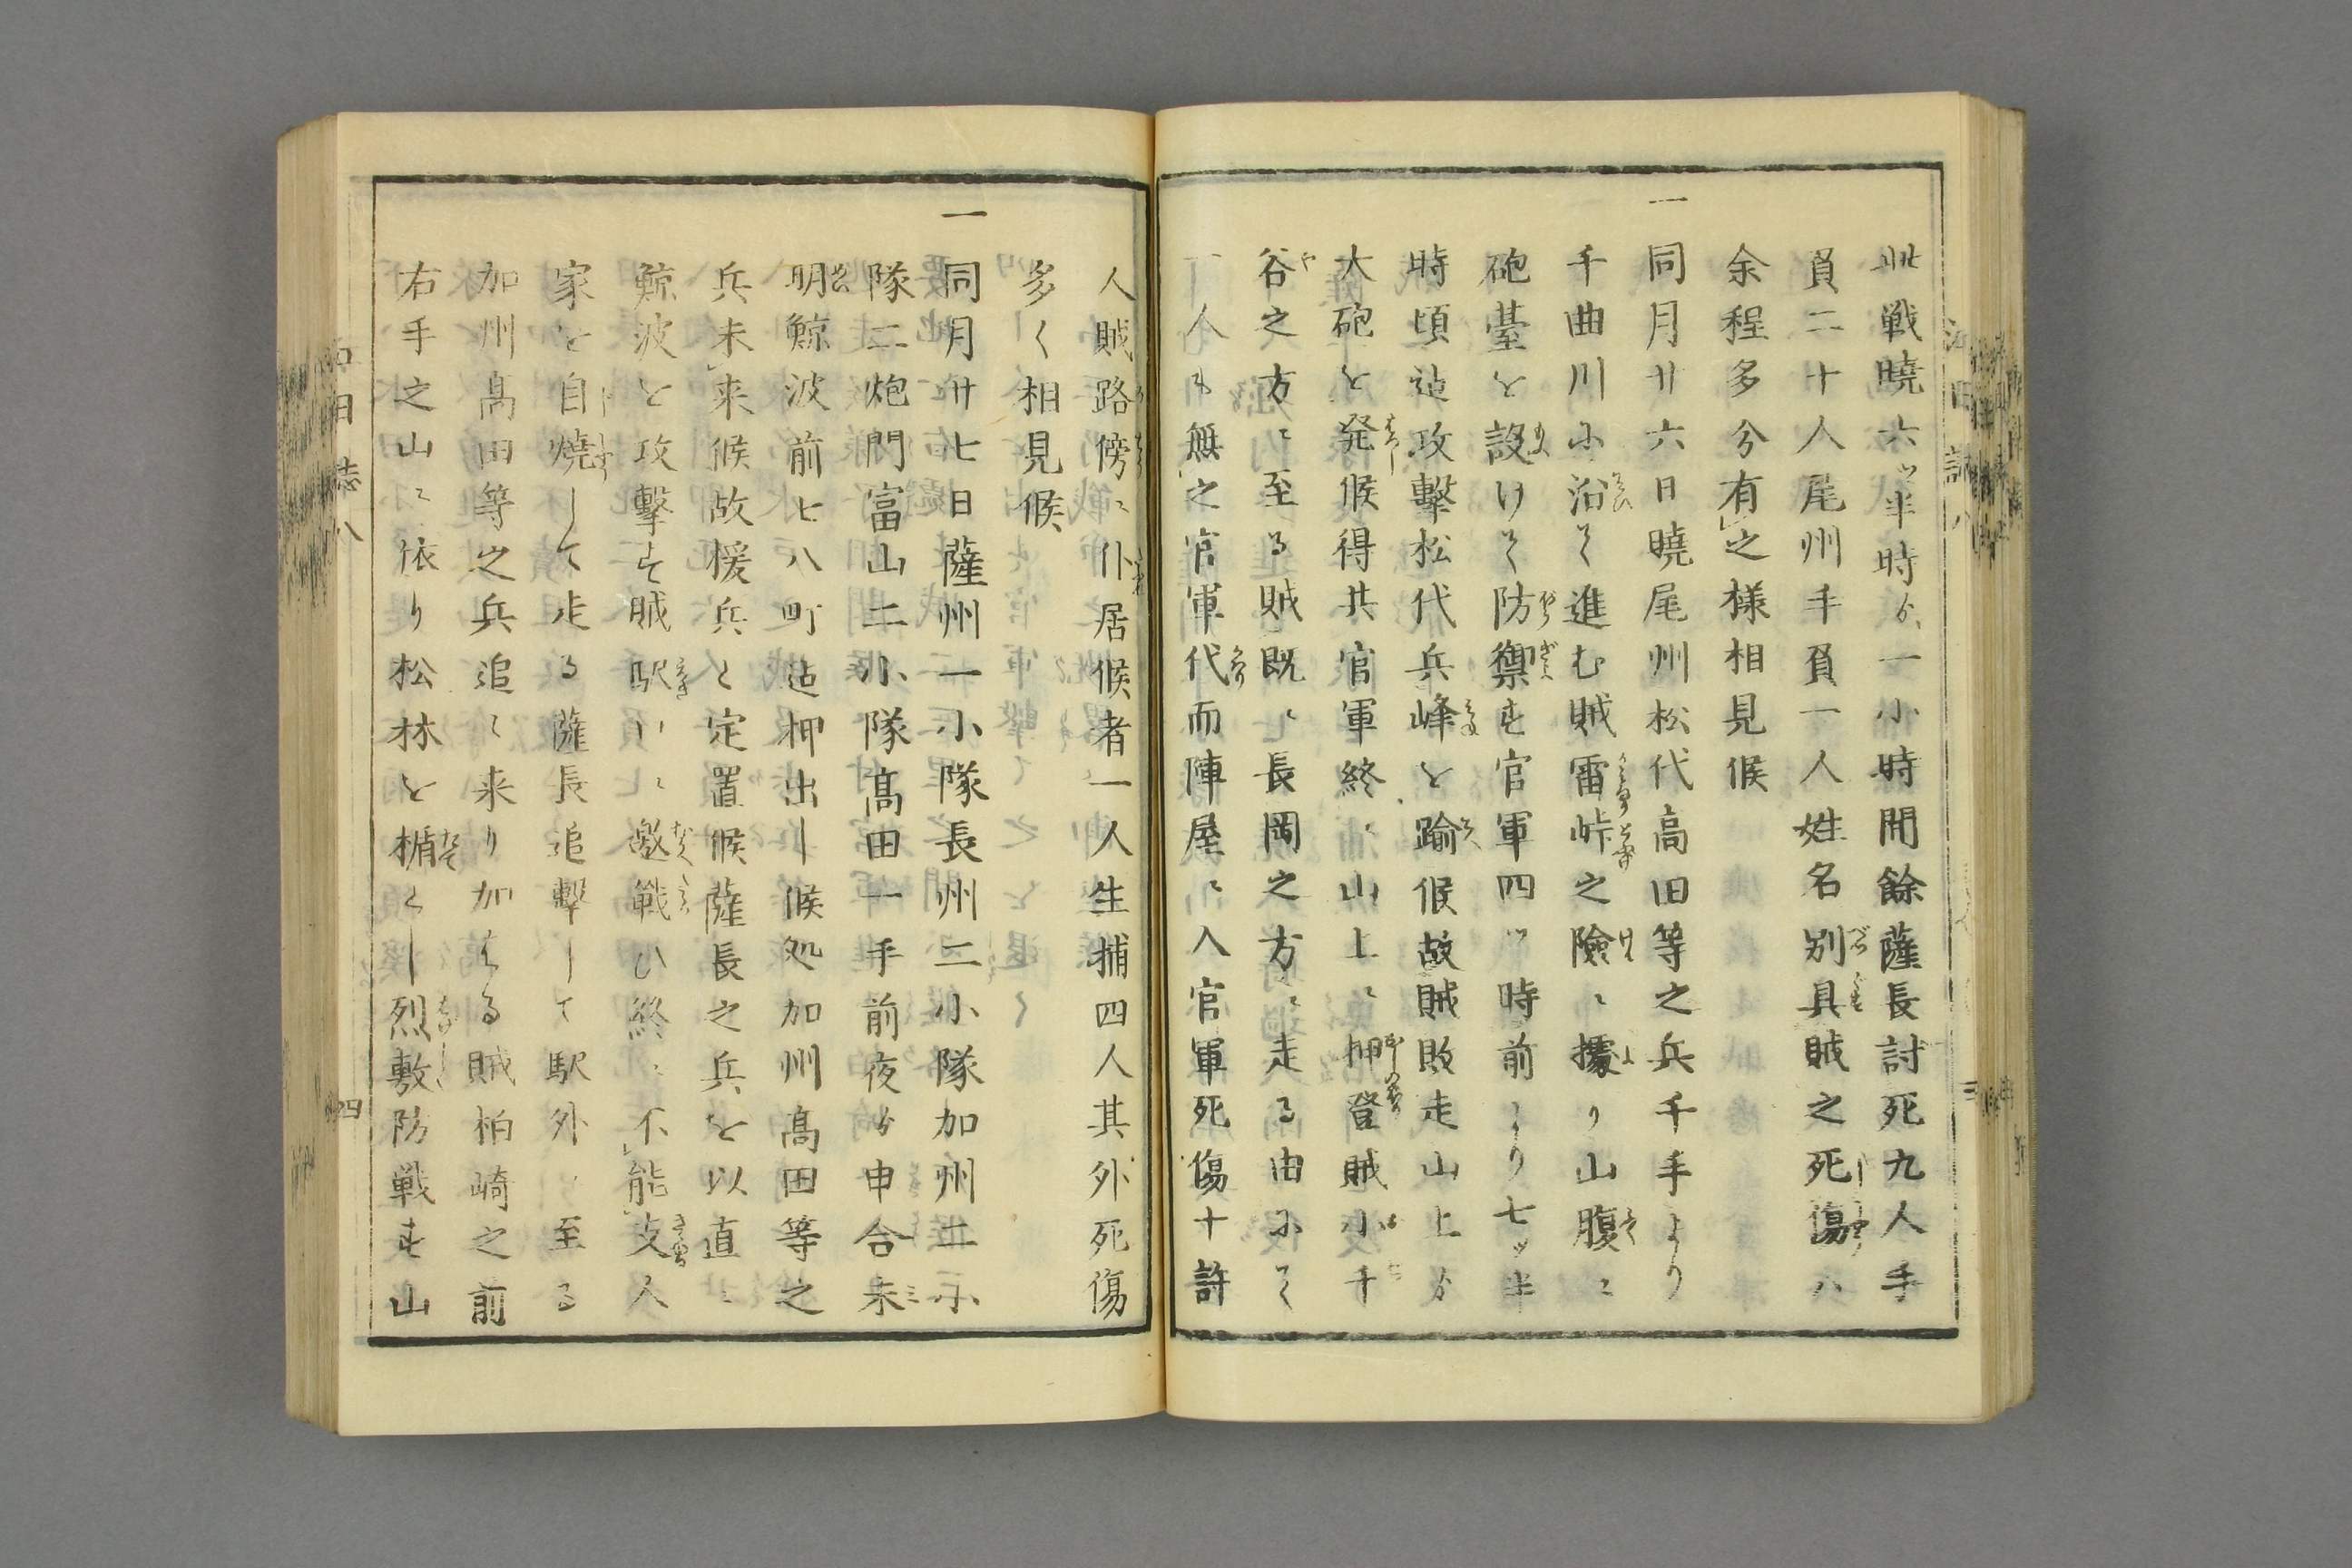 此戦暁六ツ半時ゟ一小時間餘薩長討死九人手
負二十人尾州手負一人姓名別具賊之死傷ハ
余程多分有之様相見候
一同月廿六日暁尾州松代高田等之兵千手より
千曲川に沿て進む賊雷峠之険ニ據り山腹ニ
砲䑓を設けて防禦す官軍四ツ時前より七ッ半
時頃迠攻擊松代兵峰を踰候故賊敗走山上ゟ
大砲を発候得共官軍終ニ山上ニ押登賊小千
谷之方ニ至る賊既ニ長岡之方ニ走る由にて
一人も無之官軍代而陣屋ニ入官軍死傷十許
人賊路傍ニ仆居候者一人生捕四人其外死傷
多く相見候
一同月廿七日薩州一小隊長州二小隊加州二小
隊二炮門富山二小隊髙田一手前夜ゟ申合未
明鯨波前七八町迠押出し候処加州髙田等之
兵未来候故援兵と定置候薩長之兵を以直ニ
鯨波を攻擊す賊駅ハニ邀戰ひ終ニ不能支人
家を自燒して走る薩長追擊して駅外ニ至る
加州髙田等之兵追々来り加はる賊柏崎之前
右手之山ニ依り松林を楯とし烈敷防戦す山
江日誌八
四